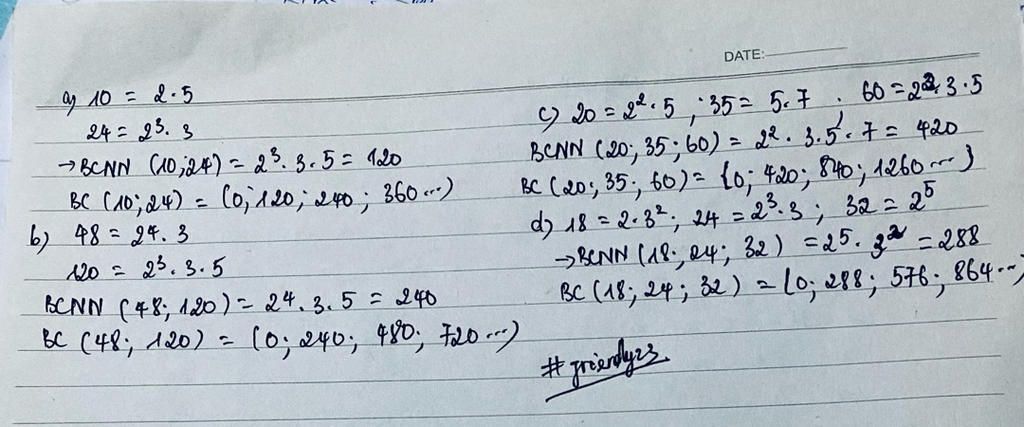 DATE:
a) 10 = 2.5
24 = 2³.3
→BCNN (10;24) = 2³.3.5 = 120
BC (10;24) = (0; 120; 240; 360...)
b) 48 = 24.3
120 = 2³.3.5
BCNN (48; 120) = 24.3.5 = 240
BC (48; 120) = (0; 240; 480; 720...)
c) 20 = 2².5 ; 35 = 5.7 ; 60 = 2².3.5
BCNN (20; 35; 60) = 2².3.5.7 = 420
BC (20; 35; 60) = {0; 420; 840; 1260...)
d) 18 = 2.3²; 24 = 2³.3; 32 = 2⁵
→BCNN (18; 24; 32) = 25.3² = 288
BC (18; 24; 32) = (0; 288; 576; 864...)
#friendly23